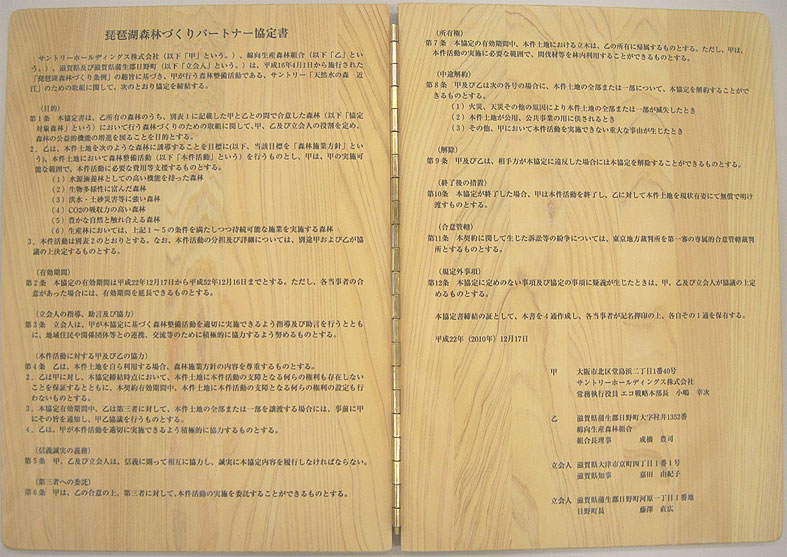 琵琶湖森林づくりパートナー協定書
サントリーホールディングス株式会社（以下「甲」という。）、綿向生産森林組合（以下「乙」とい
う。）、滋賀県及び滋賀県蒲生郡日野町（以下「立会人」という。）は、平成16年4月1日から施行された
「琵琶湖森林づくり条例」の趣旨に基づき、甲が行う森林整備活動である、サントリー「天然水の森　近
江」のための取組に関して、次のとおり協定を締結する。
（目的）
第１条　本協定書は、乙所有の森林のうち、別表１に記載した甲と乙との間で合意した森林（以下「協定
対象森林」という）において行う森林づくりのための取組に関して、甲、乙及び立会人の役割を定め、
森林の公益的機能の増進を図ることを目的とする。
２．乙は、本件土地を次のような森林に誘導することを目標に（以下、当該目標を「森林施業方針」とい
う）、本件土地において森林整備活動（以下「本件活動」という）を行うものとし、甲は、甲の実施可
能な範囲で、本件活動に必要な費用等支援するものとする。
（１）水源涵養林としての高い機能を持った森林
（２）生物多様性に富んだ森林
（３）洪水・土砂災害等に強い森林
（４）CO2の吸収力の高い森林
（５）豊かな自然と触れ合える森林
（６）生産林においては、上記１～５の条件を満たしつつ持続可能な施業を実施する森林
３．本件活動は別表２のとおりとする。なお、本件活動の分担及び詳細については、別途甲および乙が協
議の上決定するものとする。
（有効期間）
第２条　本協定の有効期間は平成22年12月17日から平成52年12月16日までとする。ただし、各当事者の合
意があった場合には、有効期間を延長できるものとする。
（立会人の指導、助言及び協力）
第３条　立会人は、甲が本協定に基づく森林整備活動を適切に実施できるよう指導及び助言を行うととも
に、地域住民や関係団体等との連携、交流等のために積極的に協力するよう努めるものとする。
（本件活動に対する甲及び乙の協力）
第４条　乙は、本件土地を自ら利用する場合、森林施業方針の内容を尊重するものとする。
２．乙は甲に対し、本協定締結時点において、本件土地に本件活動の支障となる何らの権利も存在しない
ことを保証するとともに、本契約有効期間中、本件土地に本件活動の支障となる何らの権利の設定も行
わないものとする。
３．本協定有効期間中、乙は第三者に対して、本件土地の全部または一部を譲渡する場合には、事前に甲
にその旨を通知し、甲乙協議を行うものとする。
４．乙は、甲が本件活動を適切に実施できるよう積極的に協力するものとする。
（信義誠実の義務）
第５条　甲、乙及び立会人は、信義に則って相互に協力し、誠実に本協定内容を履行しなければならない。
（第三者への委託）
第６条　甲は、乙の合意の上、第三者に対して、本件活動の実施を委託することができるものとする。
（所有権）
第７条　本協定の有効期間中、本件土地における立木は、乙の所有に帰属するものとする。ただし、甲は、
本件活動の実施に必要な範囲で、間伐材等を林内利用することができるものとする。
（中途解約）
第８条　甲及び乙は次の各号の場合に、本件土地の全部または一部について、本協定を解約することがで
きるものとする。
（１）火災、天災その他の原因により本件土地の全部または一部が滅失したとき
（２）本件土地が公用、公共事業の用に供されるとき
（３）その他、甲において本件活動を実施できない重大な事由が生じたとき
（解除）
第９条　甲及び乙は、相手方が本協定に違反した場合には本協定を解除することができるものとする。
（終了後の措置）
第10条　本協定が終了した場合、甲は本件活動を終了し、乙に対して本件土地を現状有姿にて無償で明け
渡すものとする。
（合意管轄）
第11条　本契約に関して生じた訴訟等の紛争については、東京地方裁判所を第一審の専属的合意管轄裁判
所とするものとする。
（規定外事項）
第12条　本協定に定めのない事項及び協定の事項に疑義が生じたときは、甲、乙及び立会人が協議の上定
めるものとする。
本協定書締結の証として、本書を４通作成し、各当事者が記名押印の上、各自その１通を保有する。
平成22年（2010年）12月17日
甲　大阪市北区堂島浜二丁目1番40号
サントリーホールディングス株式会社
常務執行役員 エコ戦略本部長　小嶋　幸次
乙　滋賀県蒲生郡日野町大字村井1352番
綿向生産森林組合
組合長理事　成橋　豊司
立会人　滋賀県大津市京町四丁目１番１号
滋賀県知事　嘉田　由紀子
立会人　滋賀県蒲生郡日野町河原一丁目１番地
日野町長　藤澤　直広